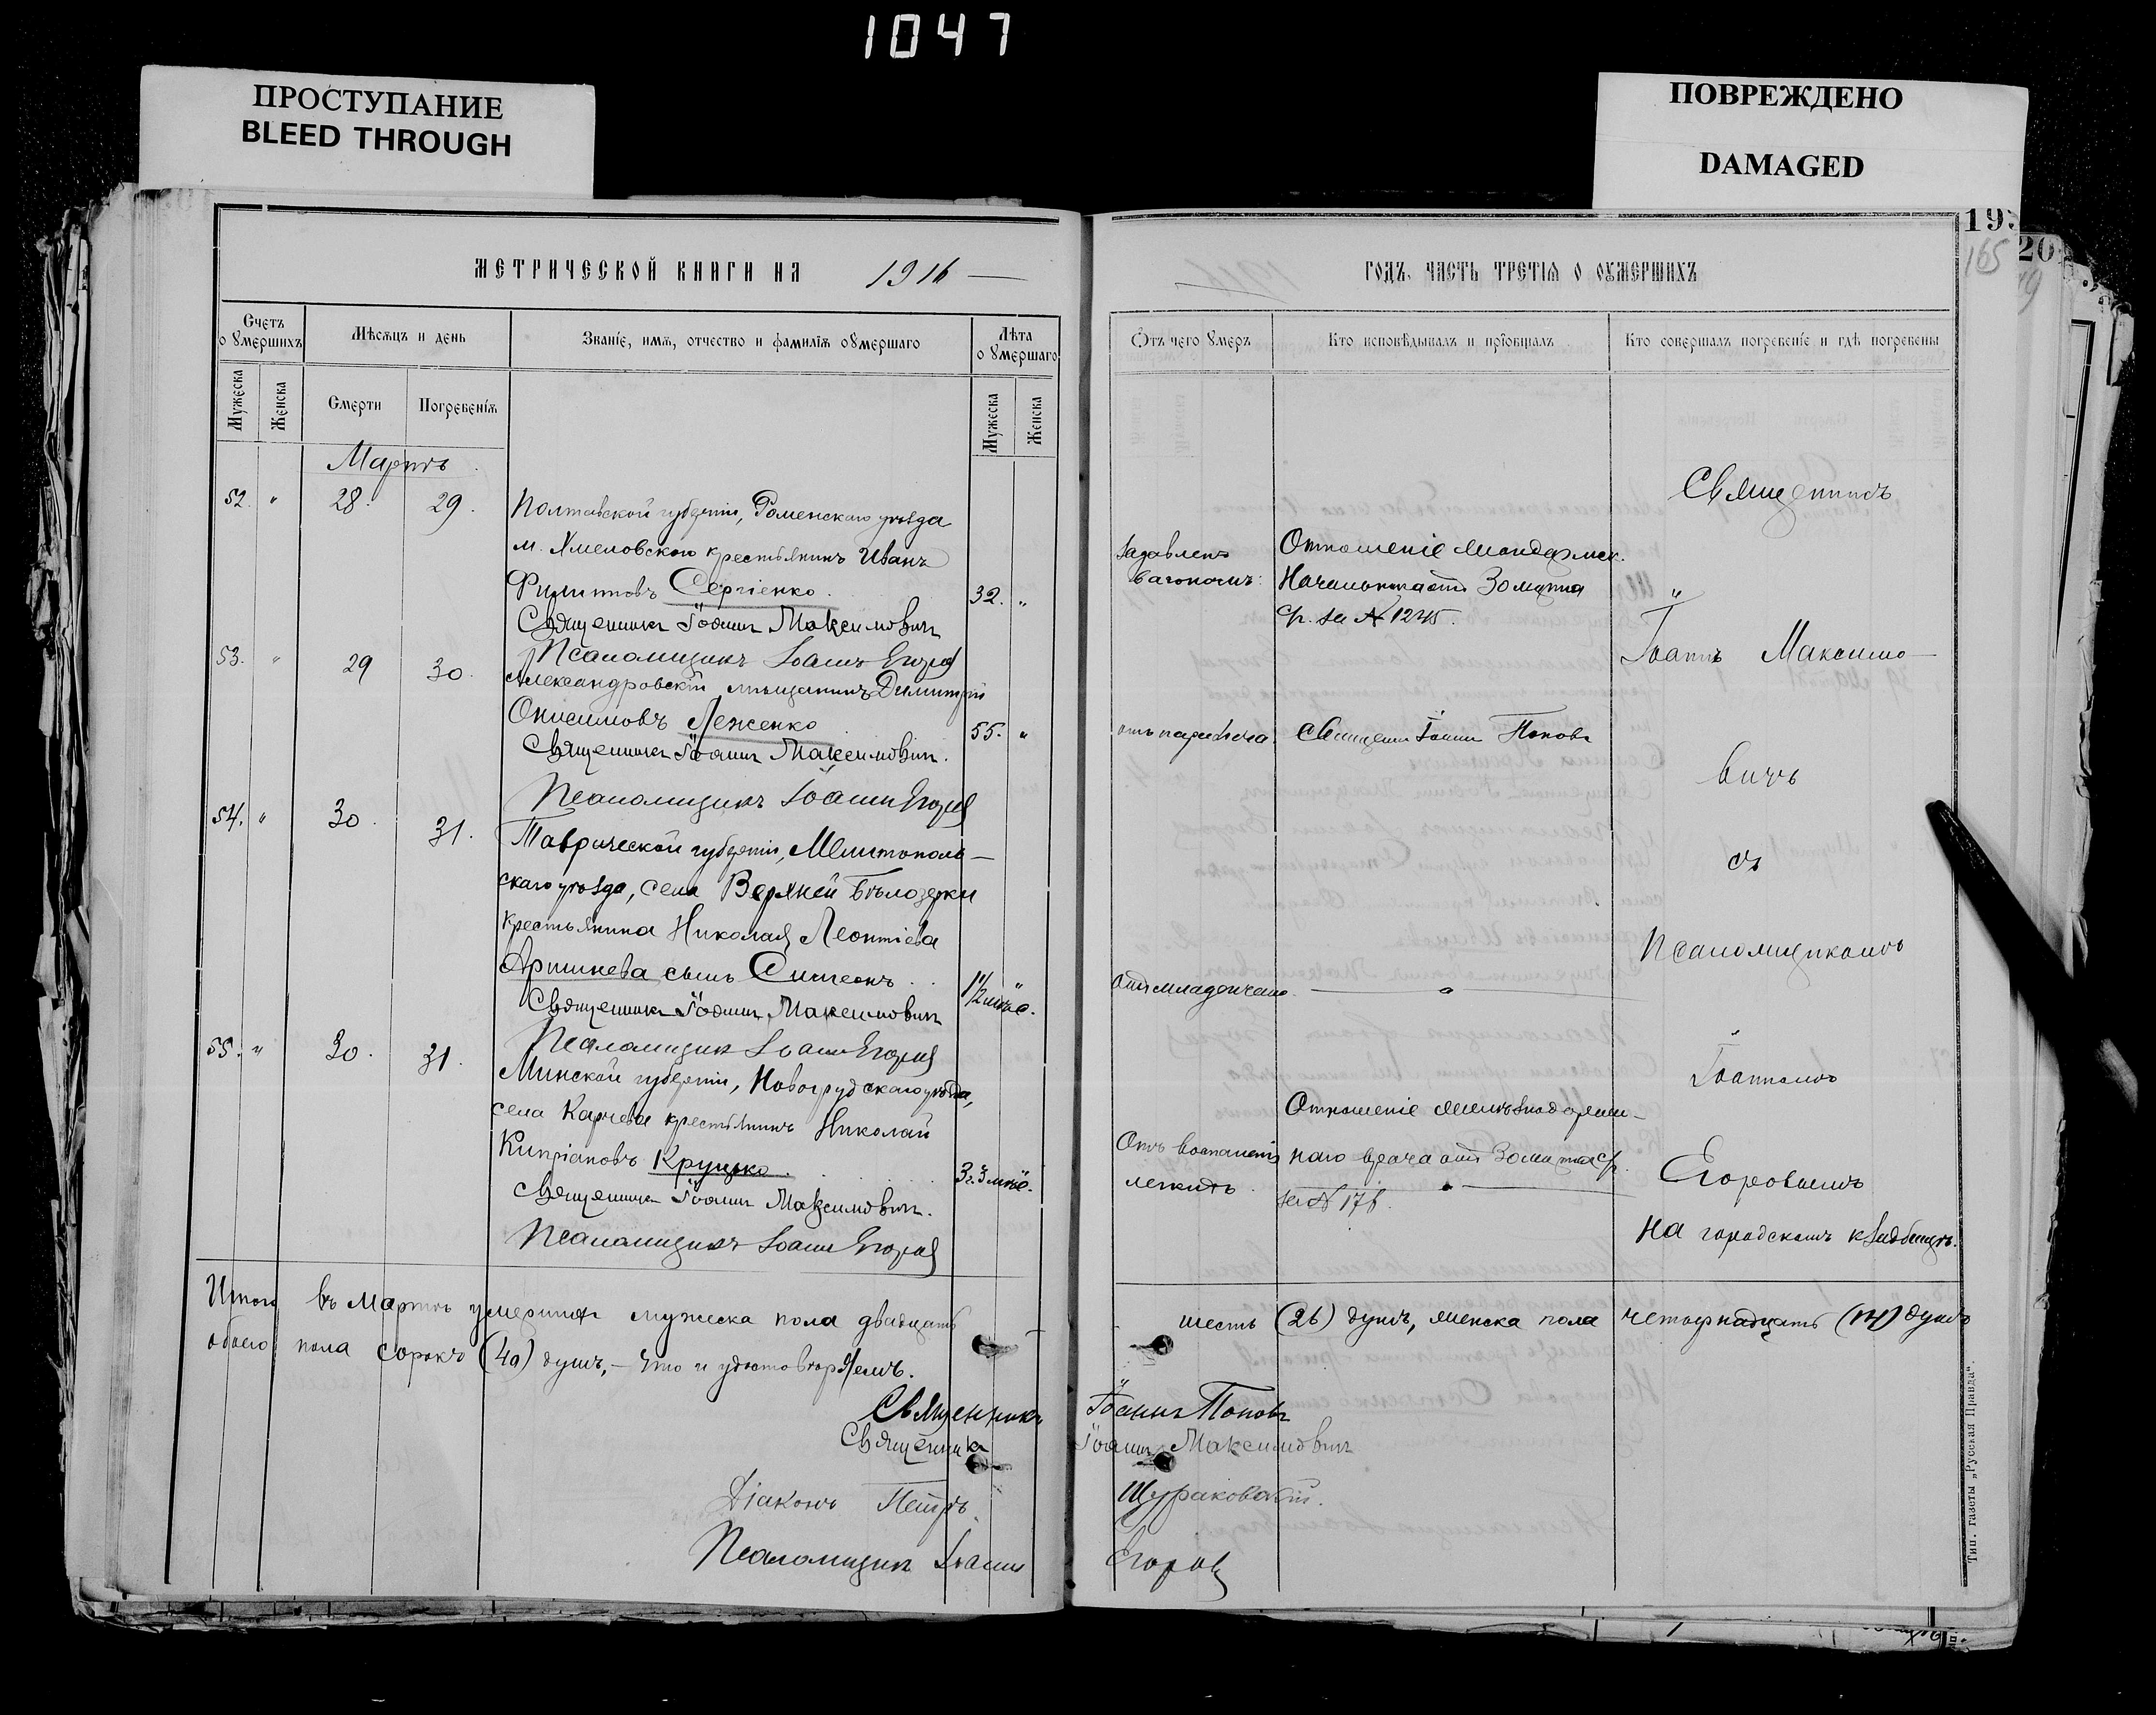 1047
ПРОСТУПАНИЕ
BLEED THROUGH
ПОВРЕЖДЕНО
DAMAGED
МЕТРИЧЕСКОЙ КНИГИ НА 1916
Счетъ о умершихъ
Мѣсяцъ и день
Званіе, имя, отчество и фамилія оумершаго
Лѣта оумершаго
Мужеска
Женска
Смерти
Погребенія
Мужеска
Женска
Мартъ
52. " 28. 29.
Полтавской губерніи, Роменскаго уѣзда
м. Хмеловскаго крестьянинъ Иванъ
Филипповъ Сергіенко. 32. "
Священникъ Іоаннъ Максимовичъ
Псаломщикъ Іоаннъ Егоровъ
53. " 29 30.
Александровскій мѣщанинъ Димитрій
Онисимовъ Леженко 55. "
Священникъ Іоаннъ Максимовичъ.
Псаломщикъ Іоаннъ Егоровъ
54. " 30. 31.
Таврической губерніи, Мелитополь-
скаго уѣзда, села Верхней Бѣлозерки
крестьянина Николая Леонтіева
сынъ Симеонъ. 1 1/2 "
Священникъ Іоаннъ Максимовичъ
Псаломщикъ Іоаннъ Егоровъ
55. " 30. 31.
Минской губерніи, Новогрудскаго уѣзда,
села крестьянинъ Николай
Кипріановъ Круцько.
Священникъ Іоаннъ Максимовичъ.
Псаломщикъ Іоаннъ Егоровъ
Итого въ Мартѣ умершихъ мужеска пола двадцать
обоего пола сорокъ (40) душъ, - что и удостовѣряемъ.
Священникъ
Священникъ
Діаконъ Петръ
Псаломщикъ Іоаннъ
ГОДЪ, ЧАСТЬ ТРЕТІЯ О ОУМЕРШИХЪ
195
165
20
Отъ чего умеръ
Кто исповѣдывалъ и пріобщалъ
Кто совершалъ погребеніе и гдѣ погребены
Священникъ
задавленъ
вагономъ.
Отношеніе жандармск.
за № 1245.
"
Іоаннъ Максимо-
Священникъ Іоаннъ Поповъ
вичъ
съ
Псаломщикомъ
отъ младенческой
Іоанномъ
Отношеніе
Отъ воспаленія наго врача отъ
легкихъ.
за №
Егоровымъ
на городскомъ кладбищѣ.
шесть (26) душъ, женска пола четырнадцать (14) душъ
Іоаннъ Поповъ
Іоаннъ Максимовичъ
Шураковскій.
Егоровъ
Тип. газеты „Русская Правда“.